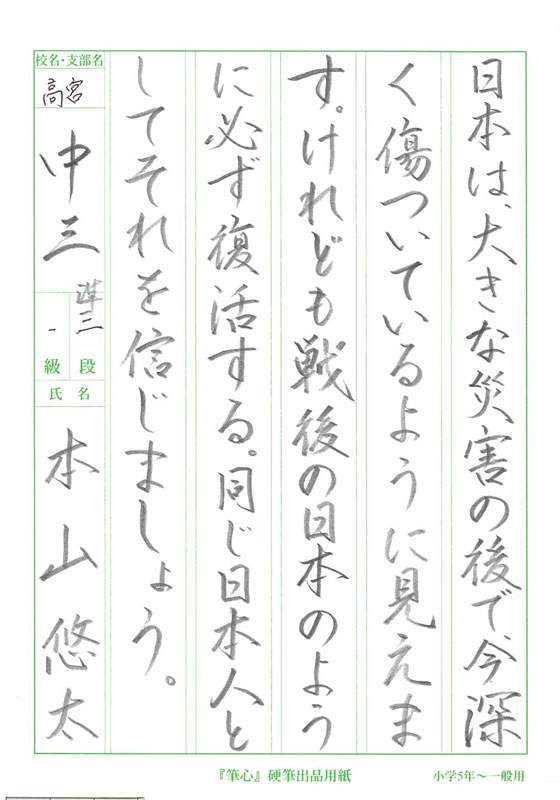 日本は、大きな災害の後で、今深
く傷ついているように見えま
す。けれども戦後の日本のよう
に必ず復活する。同じ日本人と
してそれを信じましょう。
校名・支部名
高宮
中三
準二
段
-
級
氏名
本山悠太
『筆心』硬筆出品用紙
小学5年〜一般用